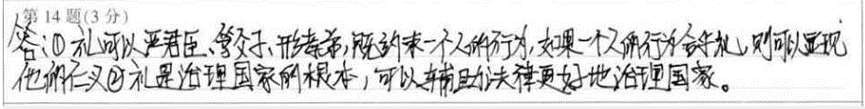 第 14 题(3 分)
答:①礼可以严君臣、笃父子、形孝弟,既约束一个人的行为,如果一个人的行为合乎礼,则可以显现
他的仁义②礼是治理国家的根本,可以辅助法律更好地治理国家。